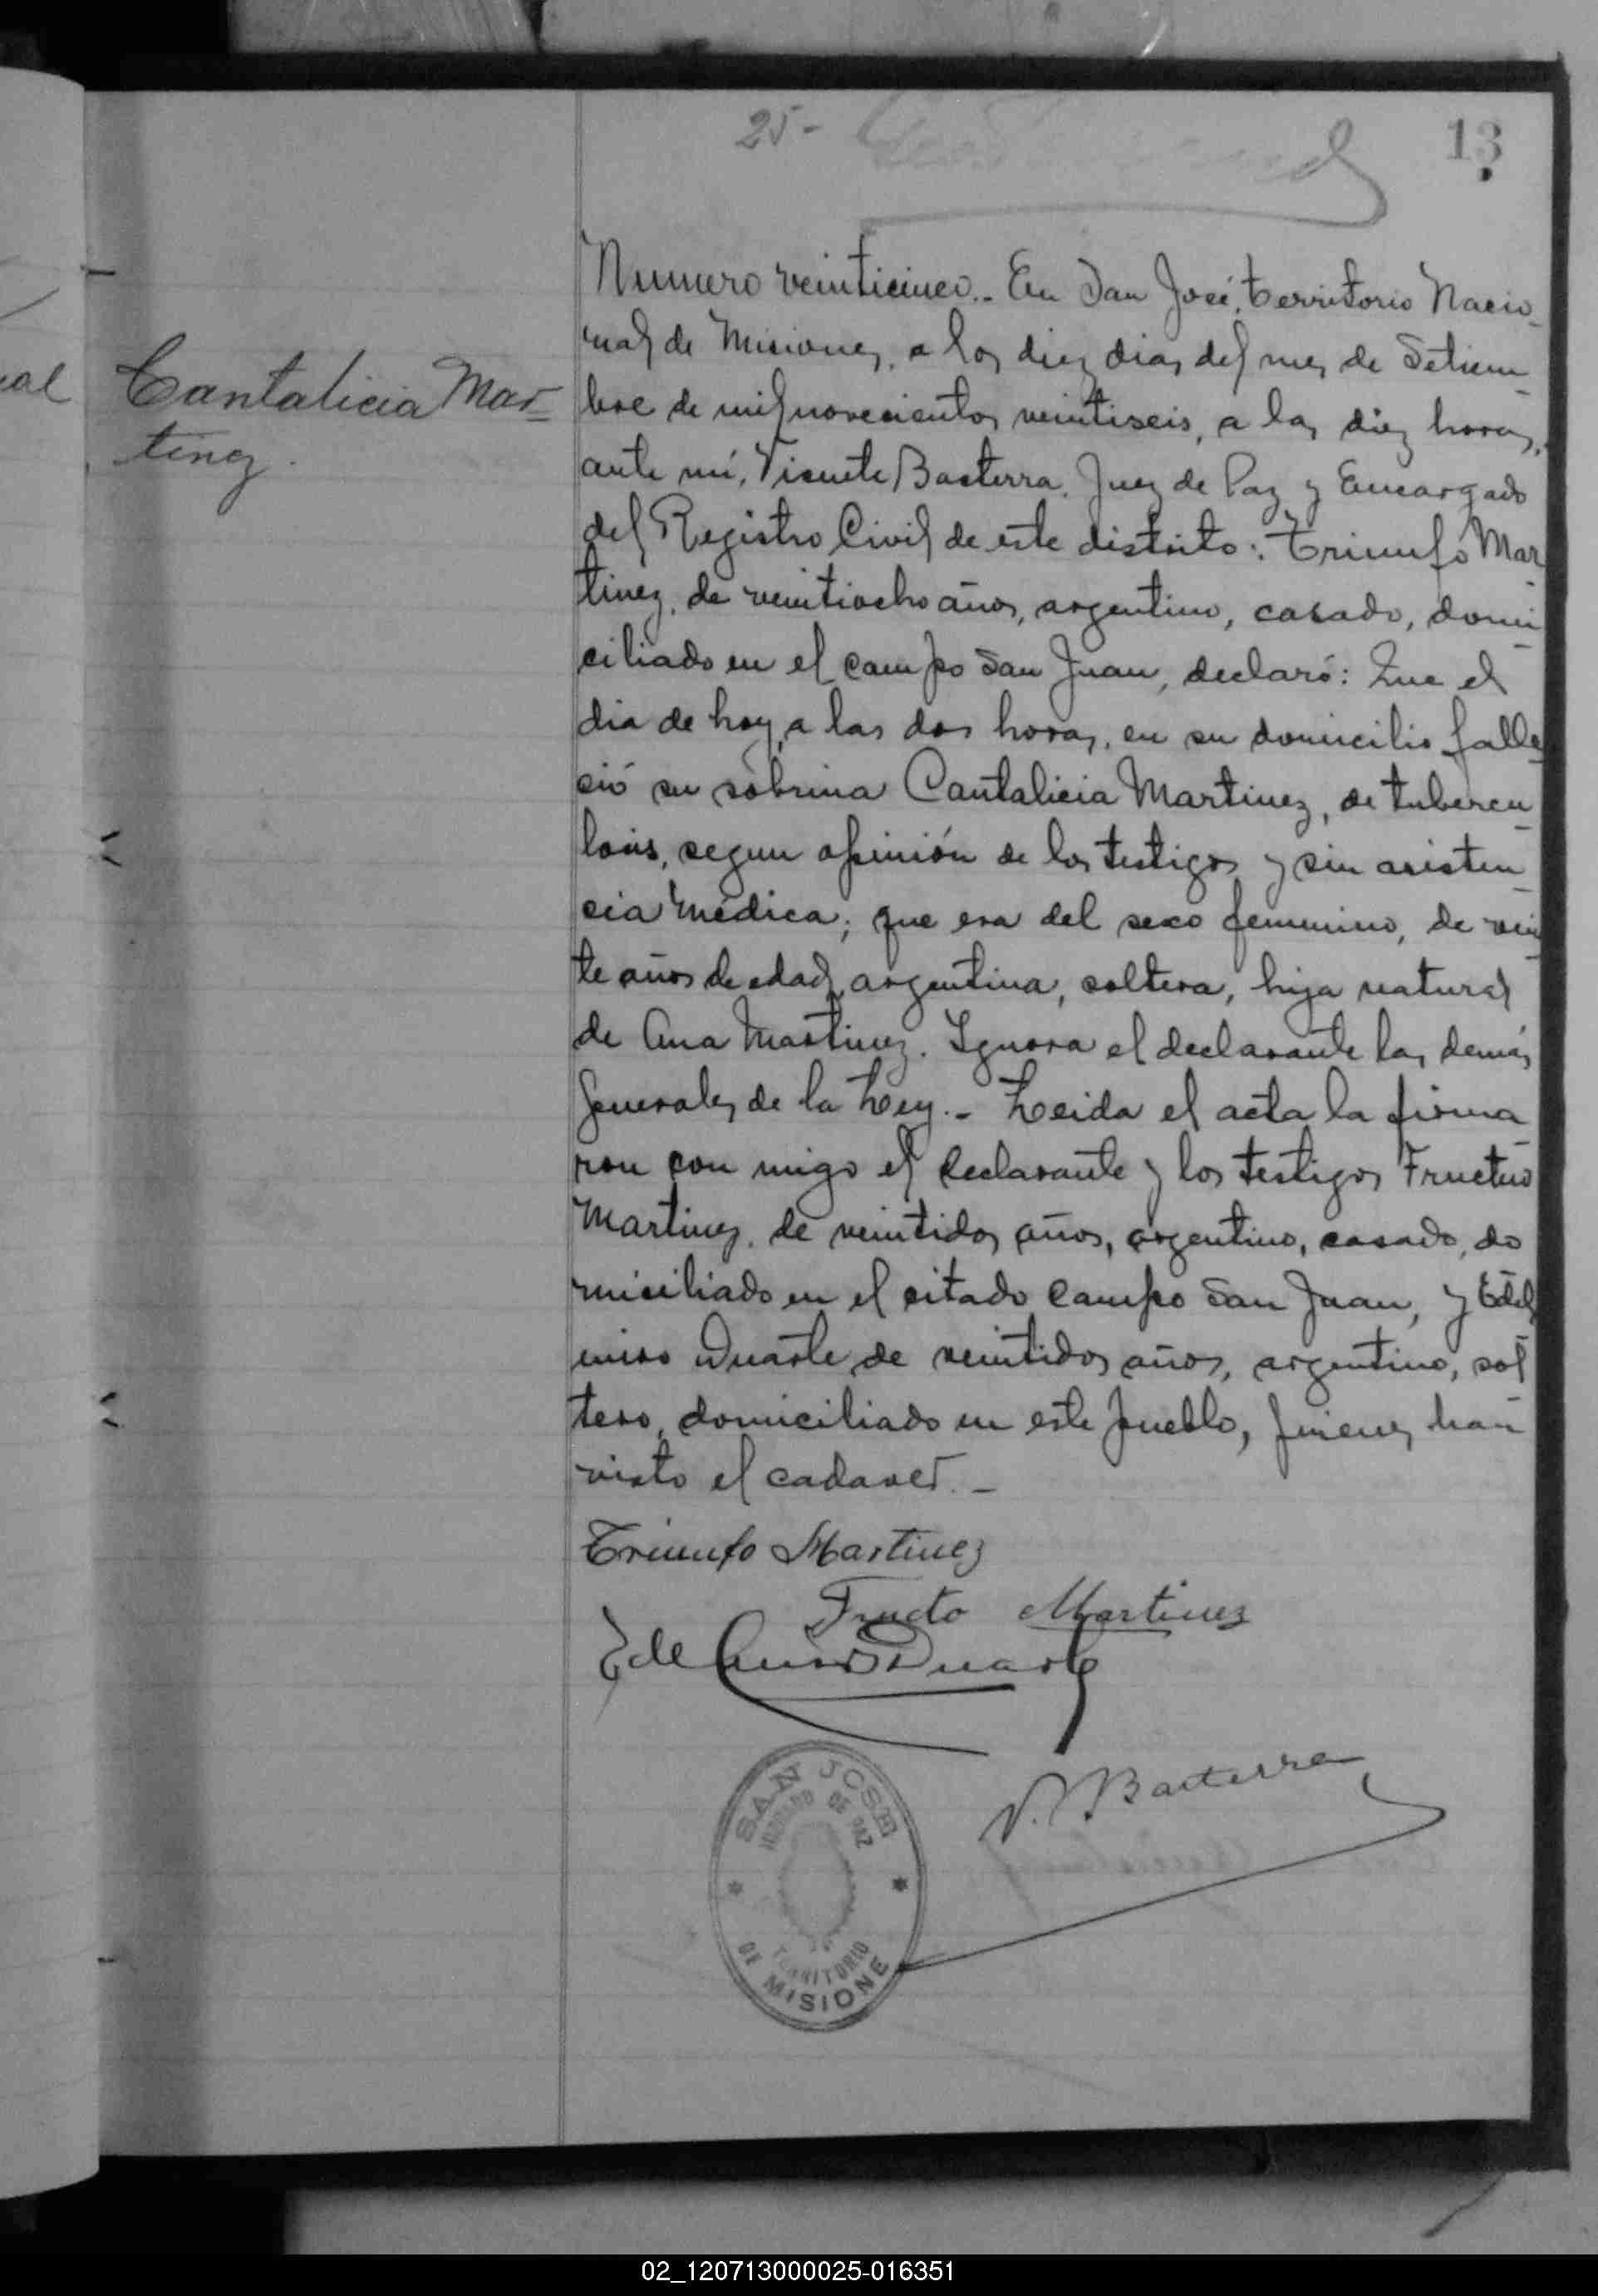 25-
13
Cantalicia Mar-
tinez.
Numero veinticinco.- En San José, territorio Nacio-
nal de Misiones, a los diez dias del mes de Setiem-
bre de mil novecientos veintiseis, a las diez horas,
ante mí, Vicente Basterra, Juez de Paz y Encargado
del Registro Civil de este distrito: Triunfo Mar-
tinez, de veintiocho años, argentino, casado, domi-
ciliado en el campo San Juan, declaró: Que el
dia de hoy, a las dos horas, en su domicilio falle-
ció su sobrina Cantalicia Martinez, de tubercu-
losis, segun opinión de los testigos y sin asisten-
cia médica; que era del sexo femenino, de vein-
te años de edad, argentina, soltera, hija natural
de Ana Martinez. Ignora el declarante las demás
generales de la Ley.- Leida el acta la firma-
ron con migo el declarante y los testigos Fructuo
Martinez, de veintidos años, argentino, casado, do
miciliado en el citado campo San Juan, y Edel
miro Duarte de veintidos años, argentino, sol-
tero, domiciliado en este pueblo, quienes han
visto el cadaver.-
Triunfo Martinez
Fructo Martinez
Edelmiro Duarte
V. Basterra
SAN JOSE
JUZGADO DE PAZ
TERRITORIO
DE MISIONE
02_120713000025-016351